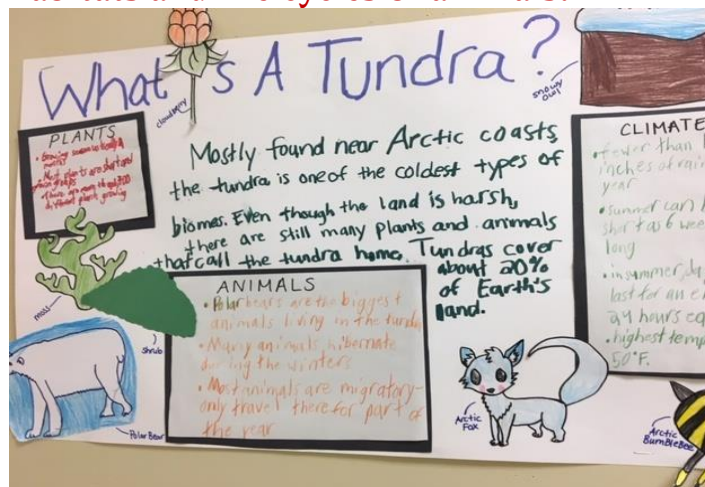 What Is A Tundra?
cloudberry
snowy
owl
PLANTS
• Growing season is
months
• Most plants are short and
grow in groups
• There are
different plants growing
Mostly found near Arctic coasts,
the tundra is one of the coldest types of
biomes. Even though the land is harsh,
there are still many plants and animals
that call the tundra home. Tundras cover
about 20%
of Earth's
land.
CLIMATE
• fewer than
inches of rain
year
• summer can
short as 6 weeks
long
• in summer, day
last for an
24 hours
• highest temp
50°F.
moss
shrub
Polar Bear
ANIMALS
• Polar bears are the biggest
animals living in the tundra
• Many animals hibernate
during the winters
• Most animals are migratory-
only travel there for part of
the year
Arctic
Fox
Arctic
BumbleBee